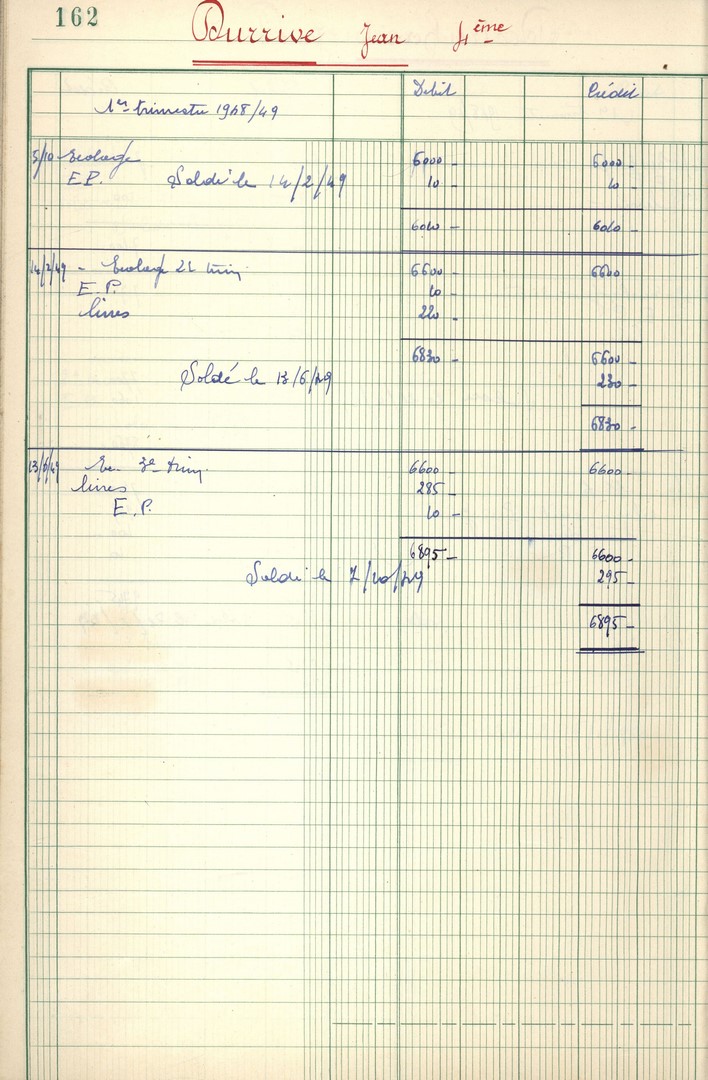 162
Durrive Jean 4ème
Débit Crédit
1er trimestre 1948/49
5/10 Ecolage 6000 - 6000 -
E.P. Soldé le 14/2/49 10 - 10 -
6010 - 6010 -
14/2/49 - Ecolage 2e trim. 6600 - 6600
E.P. 10 -
livres 220 -
6830 - 6600 -
Soldé le 13/6/49 230 -
6830 -
13/6/49 Ec. 3e trim. 6600 - 6600 -
livres 285 -
E.P. 10 -
6895 - 6600 -
Soldé le 7/10/49 295 -
6895 -